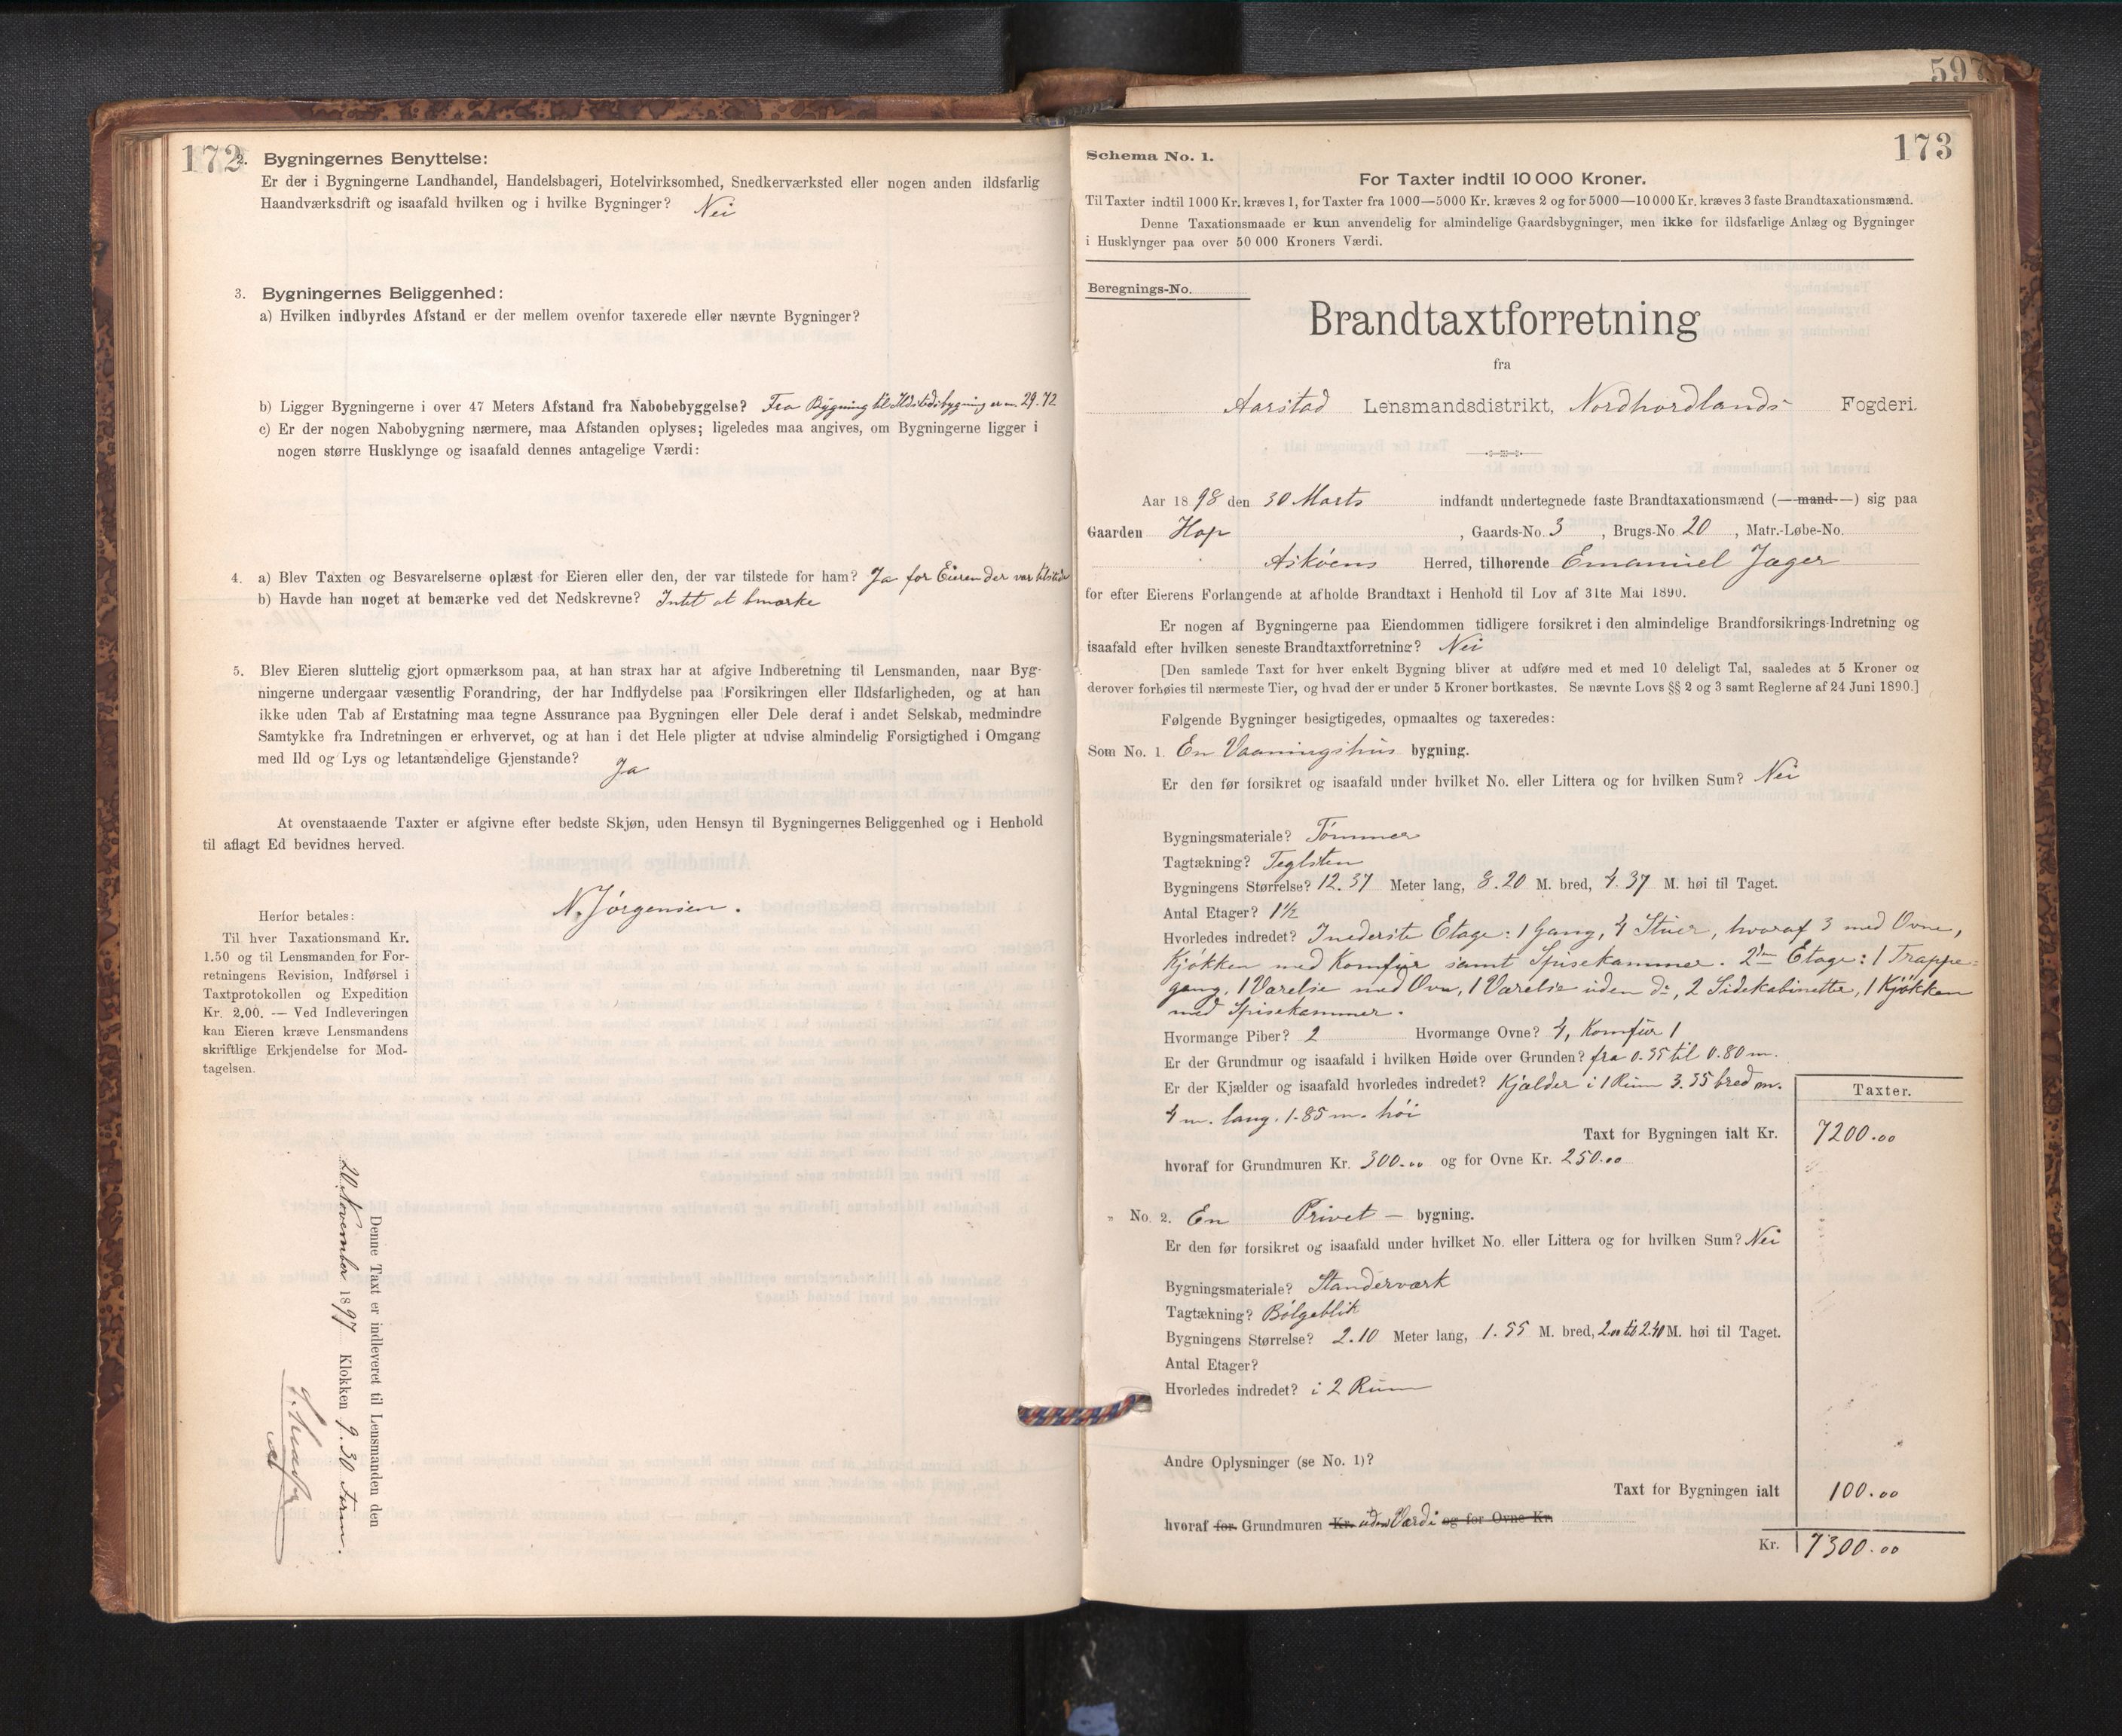 597
172
2. Bygningernes Benyttelse:
Er der i Bygningerne Landhandel, Handelsbageri, Hotelvirksomhed, Snedkerværksted eller nogen anden ildsfarlig
Haandværksdrift og isaafald hvilken og i hvilke Bygninger? Nei
3. Bygningernes Beliggenhed:
a) Hvilken indbyrdes Afstand er der mellem ovenfor taxerede eller nævnte Bygninger?
b) Ligger Bygningerne i over 47 Meters Afstand fra Nabobebyggelse? Fra Bygning til Ildstedsbygning er m. 29.72
c) Er der nogen Nabobygning nærmere, maa Afstanden oplyses; ligeledes maa angives, om Bygningerne ligger i
nogen større Husklynge og isaafald dennes antagelige Værdi:
4. a) Blev Taxten og Besvarelserne oplæst for Eieren eller den, der var tilstede for ham? Ja for Eieren der var tilstede
b) Havde han noget at bemærke ved det Nedskrevne? Intet at bmærke
5. Blev Eieren sluttelig gjort opmærksom paa, at han strax har at afgive Indberetning til Lensmanden, naar Byg-
ningerne undergaar væsentlig Forandring, der har Indflydelse paa Forsikringen eller Ildsfarligheden, og at han
ikke uden Tab af Erstatning maa tegne Assurance paa Bygningen eller Dele deraf i andet Selskab, medmindre
Samtykke fra Indretningen er erhvervet, og at han i det Hele pligter at udvise almindelig Forsigtighed i Omgang
med Ild og Lys og letantændelige Gjenstande? Ja
At ovenstaaende Taxter er afgivne efter bedste Skjøn, uden Hensyn til Bygningernes Beliggenhed og i Henhold
til aflagt Ed bevidnes herved.
N. Jørgensen.
Herfor betales:
Til hver Taxationsmand Kr.
1.50 og til Lensmanden for For-
retningens Revision, Indførsel i
Taxtprotokollen og Expedition
Kr. 2.00. — Ved Indleveringen
kan Eieren kræve Lensmandens
skriftlige Erkjendelse for Mod-
tagelsen.
Denne Taxt er indleveret til Lensmanden den
20 November 1897 Klokken 9.30 Form.
173
Schema No. 1.
For Taxter indtil 10 000 Kroner.
Til Taxter indtil 1000 Kr. kræves 1, for Taxter fra 1000—5000 Kr. kræves 2 og for 5000—10 000 Kr. kræves 3 faste Brandtaxationsmænd.
Denne Taxationsmaade er kun anvendelig for almindelige Gaardsbygninger, men ikke for ildsfarlige Anlæg og Bygninger
i Husklynger paa over 50 000 Kroners Værdi.
Beregnings-No.
Brandtaxtforretning
fra
Aarstad Lensmandsdistrikt, Nordhordlands Fogderi.
Aar 1898 den 30 Marts indfandt undertegnede faste Brandtaxationsmænd (—mand—) sig paa
Gaarden Hop, Gaards-No. 3, Brugs-No. 20, Matr.-Løbe-No.
Askøens Herred, tilhørende Emanuel Jæger
for efter Eierens Forlangende at afholde Brandtaxt i Henhold til Lov af 31te Mai 1890.
Er nogen af Bygningerne paa Eiendommen tidligere forsikret i den almindelige Brandforsikrings-Indretning og
isaafald efter hvilken seneste Brandtaxtforretning? Nei
[Den samlede Taxt for hver enkelt Bygning bliver at udføre med et med 10 deleligt Tal, saaledes at 5 Kroner og
derover forhøies til nærmeste Tier, og hvad der er under 5 Kroner bortkastes. Se nævnte Lovs §§ 2 og 3 samt Reglerne af 24 Juni 1890.]
Følgende Bygninger besigtigedes, opmaaltes og taxeredes:
Som No. 1. En Vaaningshus bygning.
Er den før forsikret og isaafald under hvilket No. eller Littera og for hvilken Sum? Nei
Bygningsmateriale? Tømmer
Tagtækning? Teglsten
Bygningens Størrelse? 12.37 Meter lang, 8.20 M. bred, 4.37 M. høi til Taget.
Antal Etager? 1½
Hvorledes indredet? I nederste Etage: 1 Gang, 4 Stuer, hvoraf 3 med Ovne,
Kjøkken med Komfur samt Spisekammer. 2den Etage: 1 Trappe=
gang, 1 Værelse med Ovn, 1 Værelse uden do, 2 Sidekabinetter, 1 Kjøkken
med Spisekammer.
Hvormange Piber? 2 Hvormange Ovne? 4, Komfur 1
Er der Grundmur og isaafald i hvilken Høide over Grunden? fra 0.35 til 0.80 m.
Er der Kjælder og isaafald hvorledes indredet? Kjælder i 1 Rum 3.35 bred m.
4 m. lang. 1.85 m. høi
Taxter.
Taxt for Bygningen ialt Kr. 7200.00
hvoraf for Grundmuren Kr. 300.00 og for Ovne Kr. 250.00
„ No. 2. En Privet — bygning.
Er den før forsikret og isaafald under hvilket No. eller Littera og for hvilken Sum? Nei
Bygningsmateriale? Standerværk
Tagtækning? Bølgeblik
Bygningens Størrelse? 2.10 Meter lang, 1.55 M. bred, 2.00 til 2.40 M. høi til Taget.
Antal Etager?
Hvorledes indredet? i 2 Rum
Andre Oplysninger (se No. 1)?
Taxt for Bygningen ialt 100.00
hvoraf for Grundmuren Kr. uden Værdi og for Ovne Kr.
Kr. 7300.00